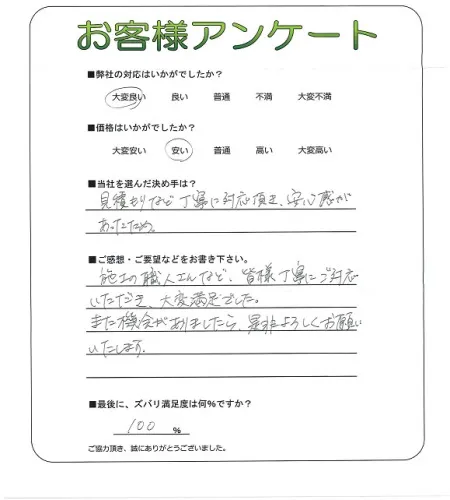 お客様アンケート
■弊社の対応はいかがでしたか？
大変良い 良い 普通 不満 大変不満
■価格はいかがでしたか？
大変安い 安い 普通 高い 大変高い
■当社を選んだ決め手は？
見積もりなど丁寧に対応頂き、安心感が
あったため。
■ご感想・ご要望などをお書き下さい。
施工の職人さんなど、皆様丁寧にご対応
いただき、大変満足でした。
また機会がありましたら、是非よろしくお願い
いたします。
■最後に、ズバリ満足度は何％ですか？
100 ％
ご協力頂き、誠にありがとうございました。